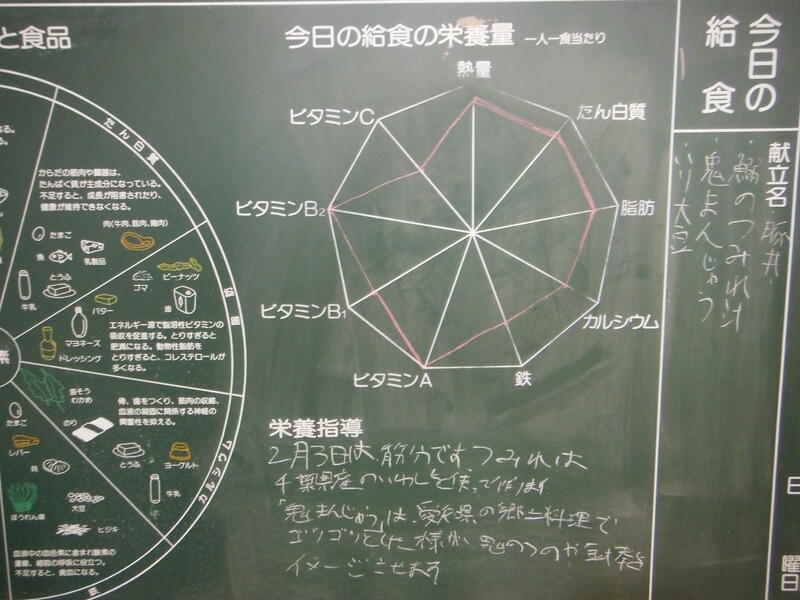 と食品
たん白質
からだの筋肉や臓器は、
たんぱく質が主成分になっている。
不足すると、成長が阻害されたり、
健康が維持できなくなる。
たまご
肉(牛肉、豚肉、鶏肉)
魚
乳製品
とうふ
牛乳
ゴマ
ピーナッツ
油
バター
マヨネーズ
ドレッシング
脂肪
エネルギー源で脂溶性ビタミンの
吸収を促進する。とりすぎると
肥満になる。動物性脂肪を
とりすぎると、コレステロールが
多くなる。
素
わかめ
骨、歯をつくり、筋肉の収縮、
血液の凝固に関係する神経の
興奮性を抑える。
のり
とうふ
ヨーグルト
牛乳
カルシウム
たまご
レバー
貝
ほうれん草
大豆
ヒジキ
血液中の血色素に含まれ酸素の
運搬、細胞の呼吸に役立つ。
不足すると、貧血になる。
鉄
今日の給食の栄養量 一人一食当たり
熱量
たん白質
脂肪
カルシウム
鉄
ビタミンA
ビタミンB1
ビタミンB2
ビタミンC
栄養指導
2月3日は、節分です つみれは
千葉県産のいわしを使って作ります
「鬼まんじゅう」は、愛知県の郷土料理で
ゴツゴツとした様が、鬼のつのや金棒を
イメージさせます
今日の
給食
献立名
豚丼
鰯のつみれ汁
鬼まんじゅう
いり大豆
日
曜日